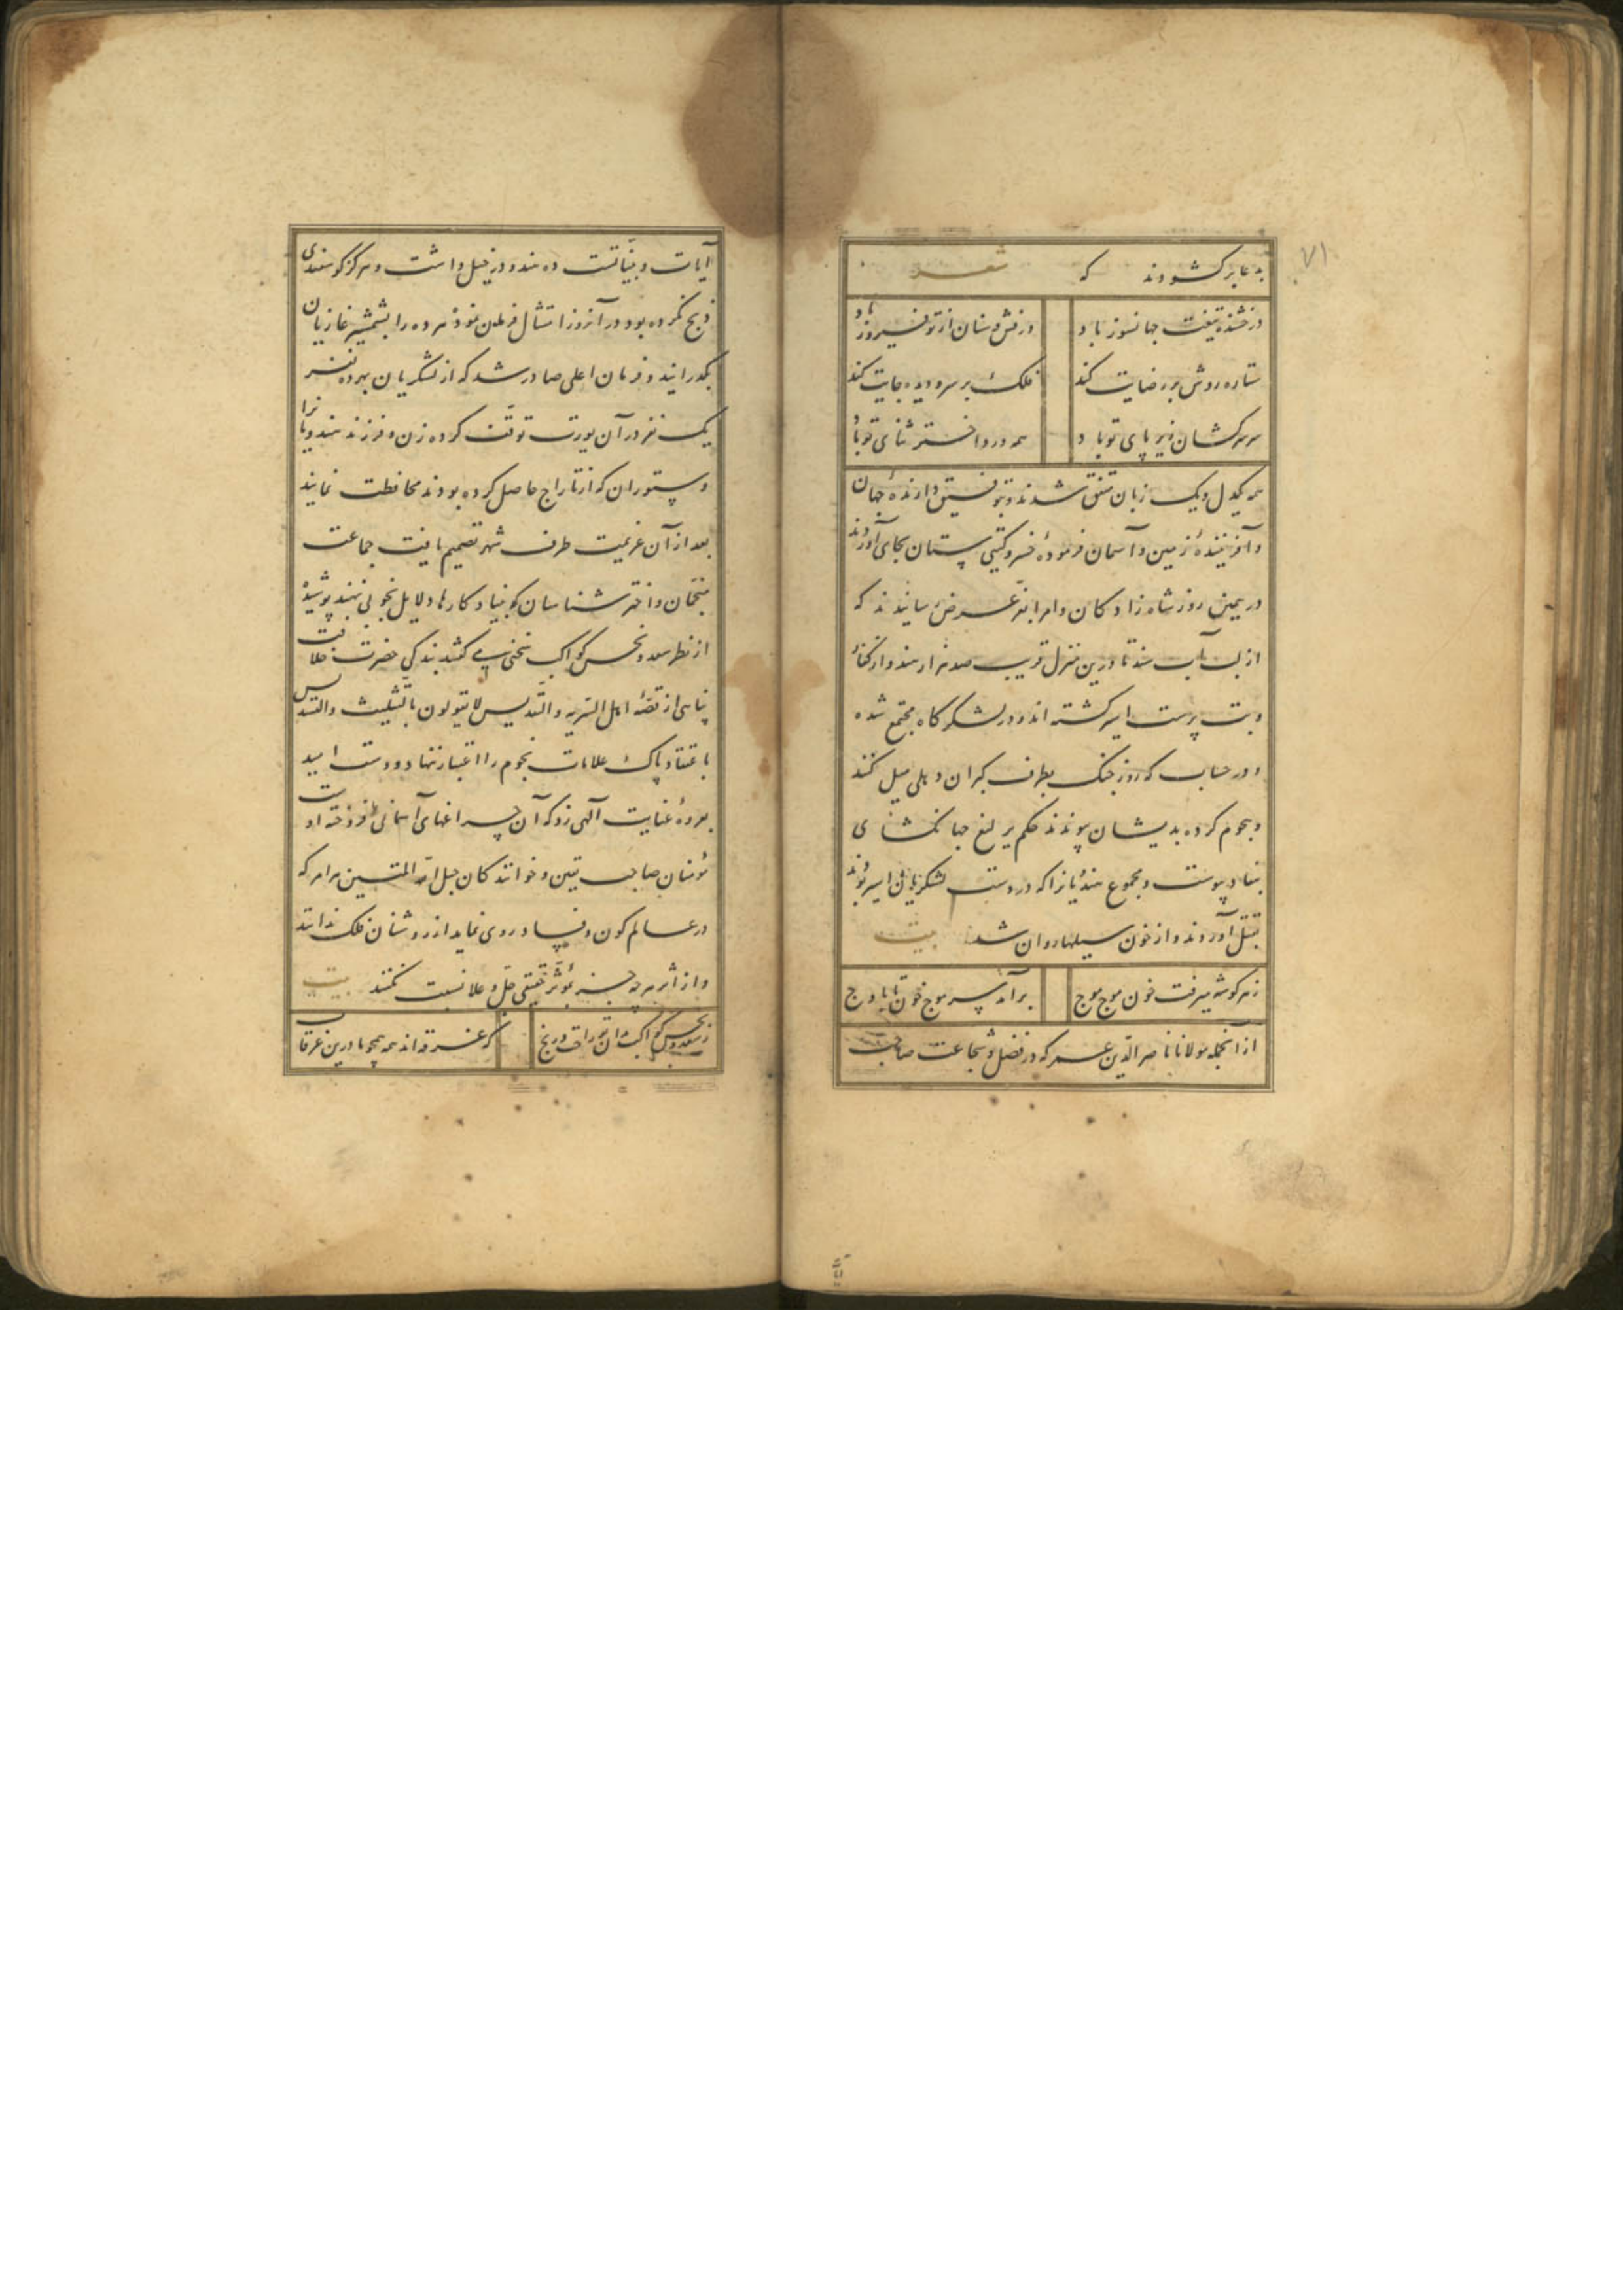 ۷۱
بدعا برکشودند که شعر
درخشنده تیغت جهانسوز باد درفش و سنان از تو فیروز باد
ستاره روش بر رضایت کند فلک بر سر و دیده جایت کند
سر سرکشان زیر پای تو باد همه ورد اختر ثنای تو باد
همه یکدل و یک زبان متفق شدند و بتوفیق دارندهٔ جهان
و آفرینندهٔ زمین و آسمان فرمودهٔ خسرو کیتی ستان بجای آوردند
در همین روز شاه زادکان و امرا بعرض رسانیدند که
از لب آب سند تا درین منزل قریب صد هزار هندو از کفار
و بت پرست اسیر کشته اند و در لشکرکاه مجتمع شده
و در حساب که روز جنک بطرف کبران دهلی میل کنند
و هجوم کرده بدیشان پیوندند حکم یرلیغ جهانکشای
بنفاد پیوست و مجموع هندیانرا که در دست لشکریان اسیر بودند
بقتل آوردند و از خون سیلها روان شد بیت
ز هر کوشه میرفت خون موج موج برآمد سر موج خون تا باوج
از آنجمله مولانا ناصر الدین عمر که در فضل و شجاعت صاحب
آیات و بیناتست ده هندو در خیل داشت و هرکز کوسفندی
ذبح نکرده بود در آنروز امتثال فرمان نموده هر ده را بشمشیر غازیان
بکذرانید و فرمان اعلی صادر شد که از لشکریان بهر ده نفر
یک نفر در آن یورت توقف کرده زن و فرزند هندویانرا
و ستوران که از تاراج حاصل کرده بودند محافظت نمایند
بعد از آن عزیمت طرف شهر تصمیم یافت جماعت
منجمان و اختر شناسان که بنیاد کارها و دلایل نجومی نهند پوشیده
از نظر سعد و نحس کواکب سخنی می گفتند بندکی حضرت خلافت
پناهی از قصهٔ اهل التنزیه والتقدیس لا یقولون بالتثلیث والتسدیس
باعتقاد پاک علامات نجوم را اعتبار ننهاد و دست امید
بعروهٔ عنایت آلهی زد که آن چراغهای آسمانی افروختهٔ اوست
مؤمنان صاحب یقین و خوانندکان حبل الله المتین هر امر که
در عالم کون و فساد روی نماید از روشنان فلک ندانند
و از اثر هر چه جز مؤثر حقیقی جل و علا نسبت نکنند بیت
ز سعد و نحس کواکب مدان تو راحت و رنج که غرقه اند همه همچو ما درین غرقاب